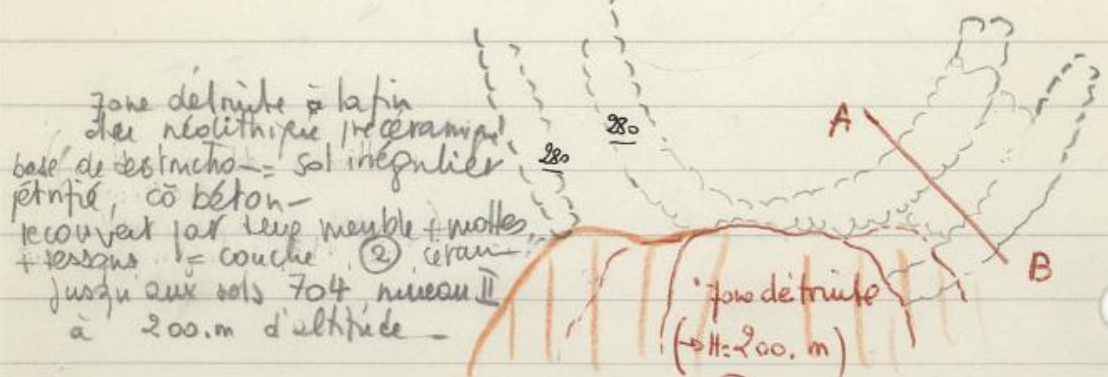 zone détruite à la fin
du néolithique précéramique
base de destructo = sol irrégulier
pétrifié, cō béton
recouvert par terre meuble + mottes
+ tessons = couche ② céram
jusqu'aux sols 704, niveau II
à 200.m d'altitude
280
280
A
B
zone détruite
(→ H=200. m)